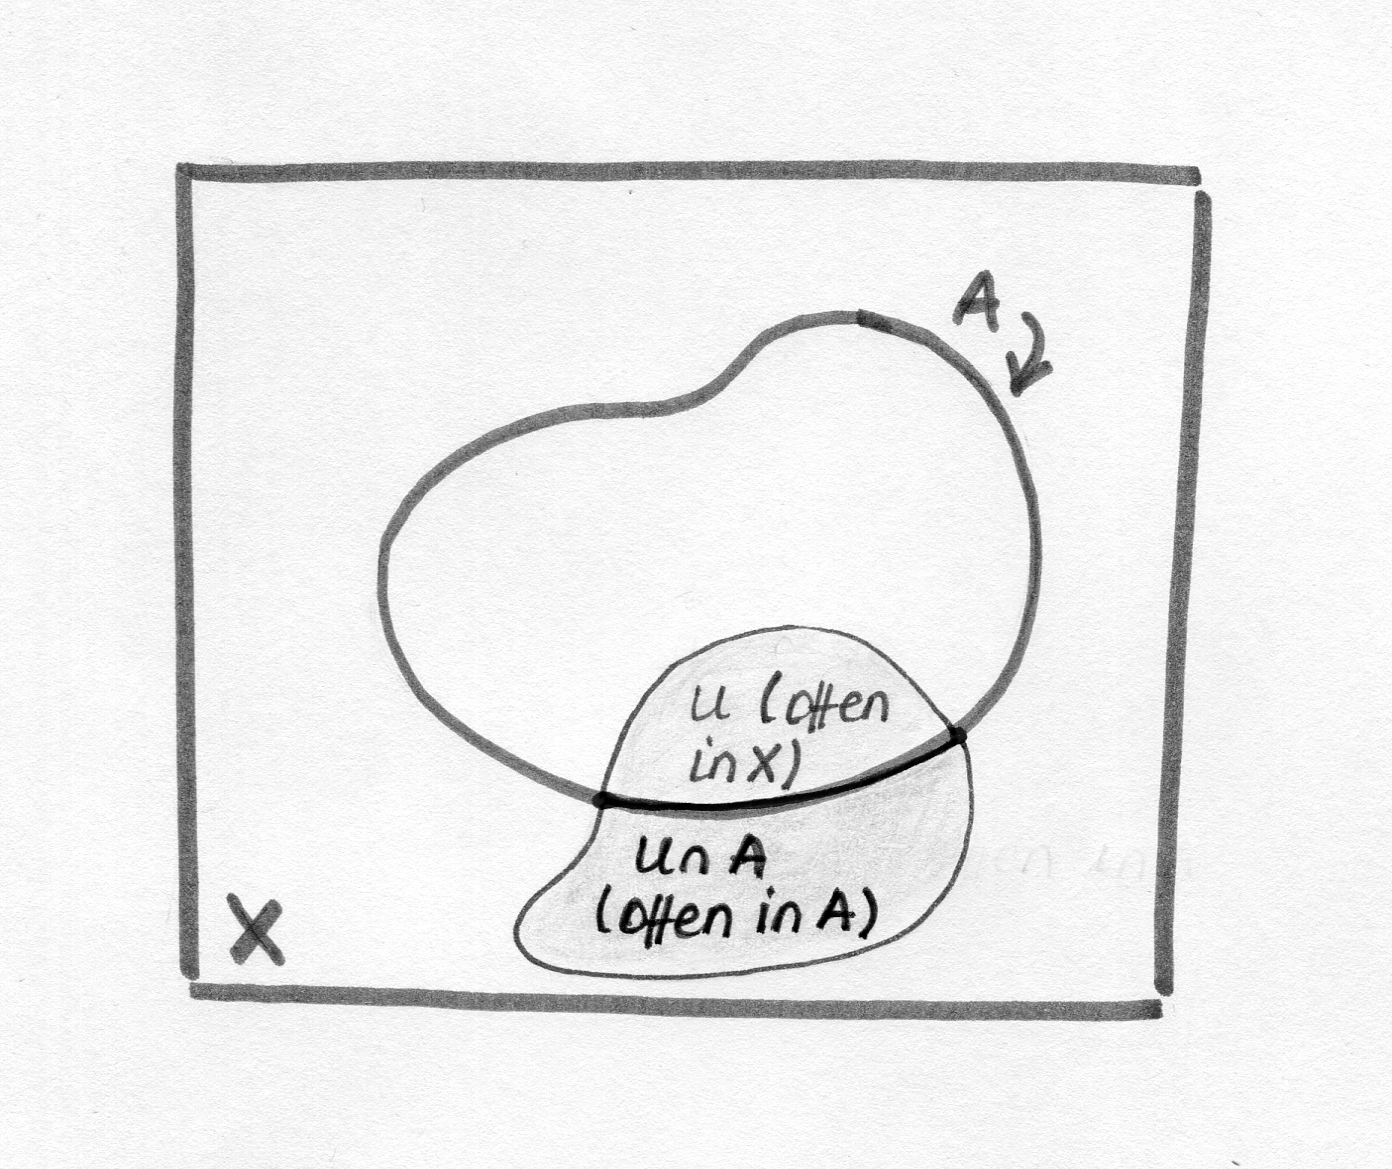 A
U (offen
in X)
U ∩ A
(offen in A)
X